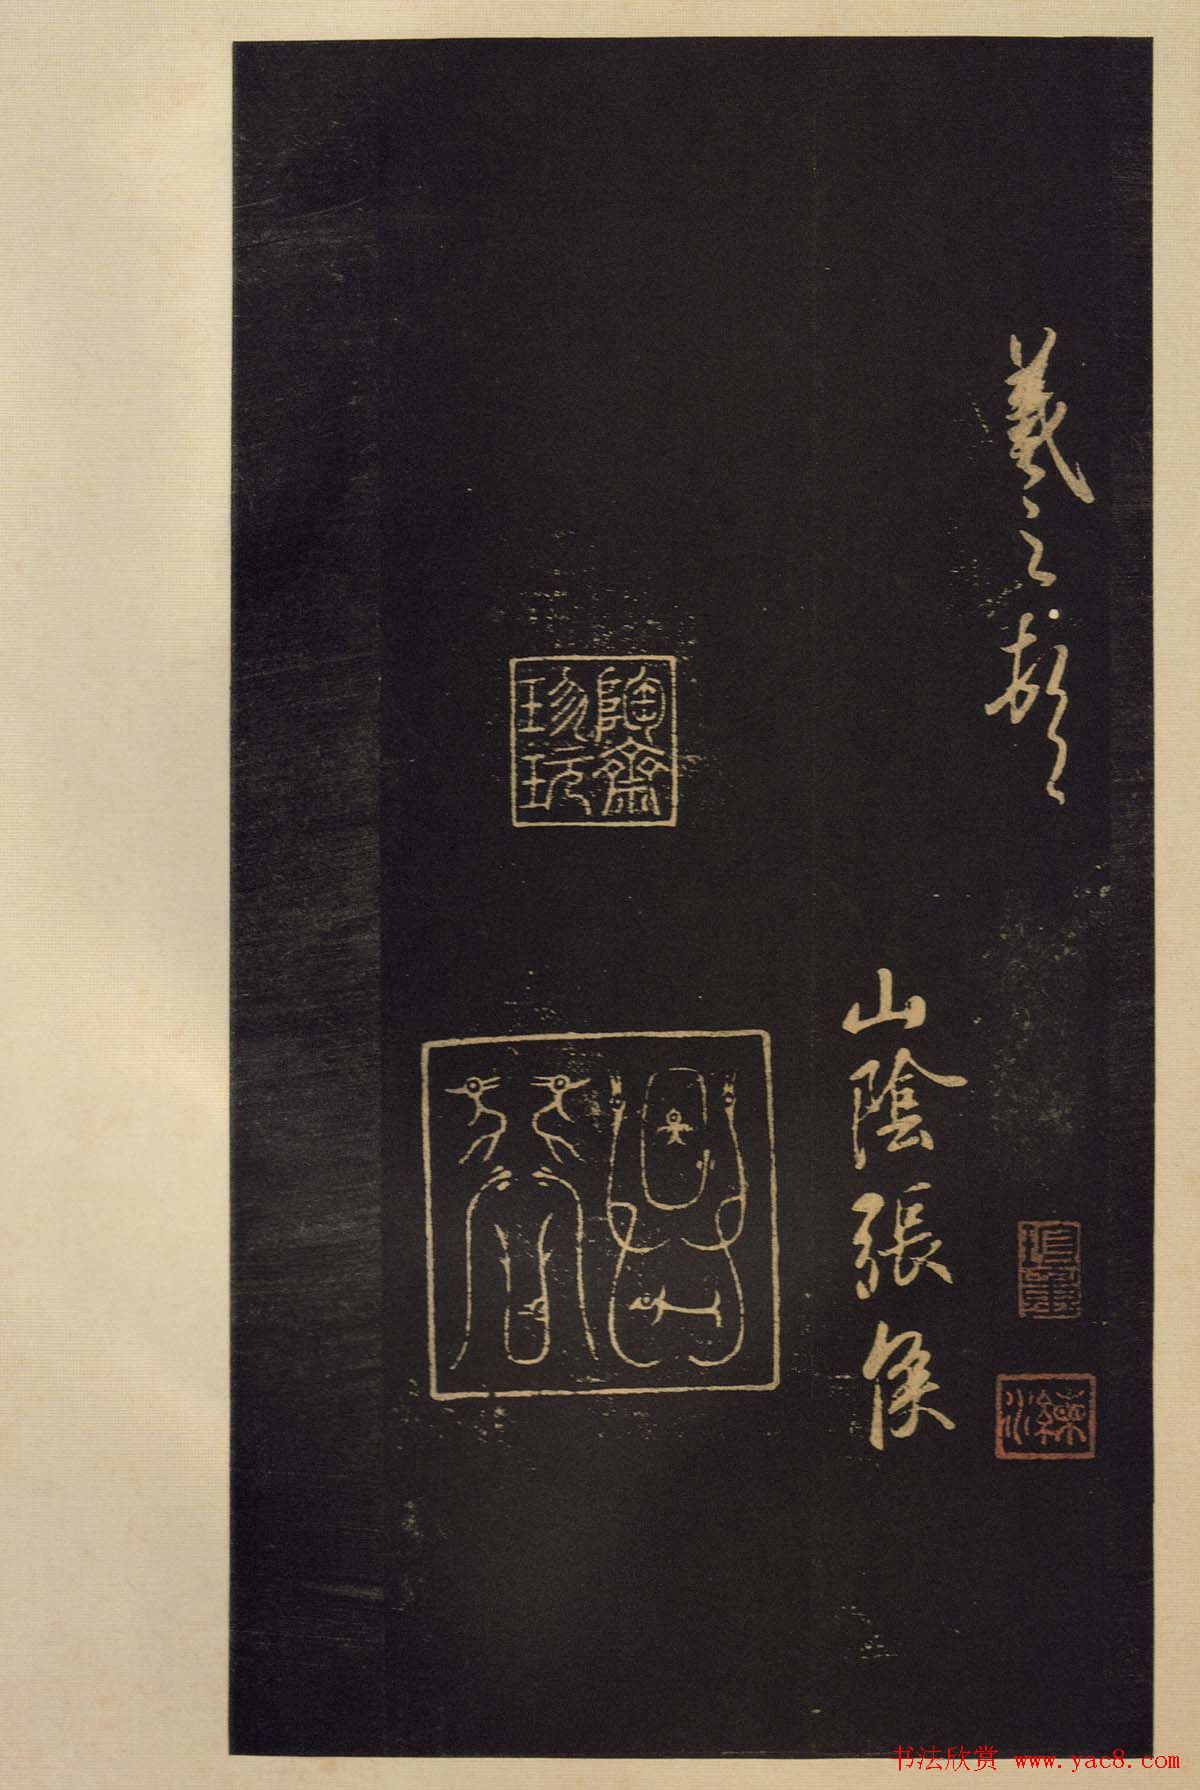 羲之頓
山陰張侯
陶齋
珍玩
书法欣赏 www.yac8.com